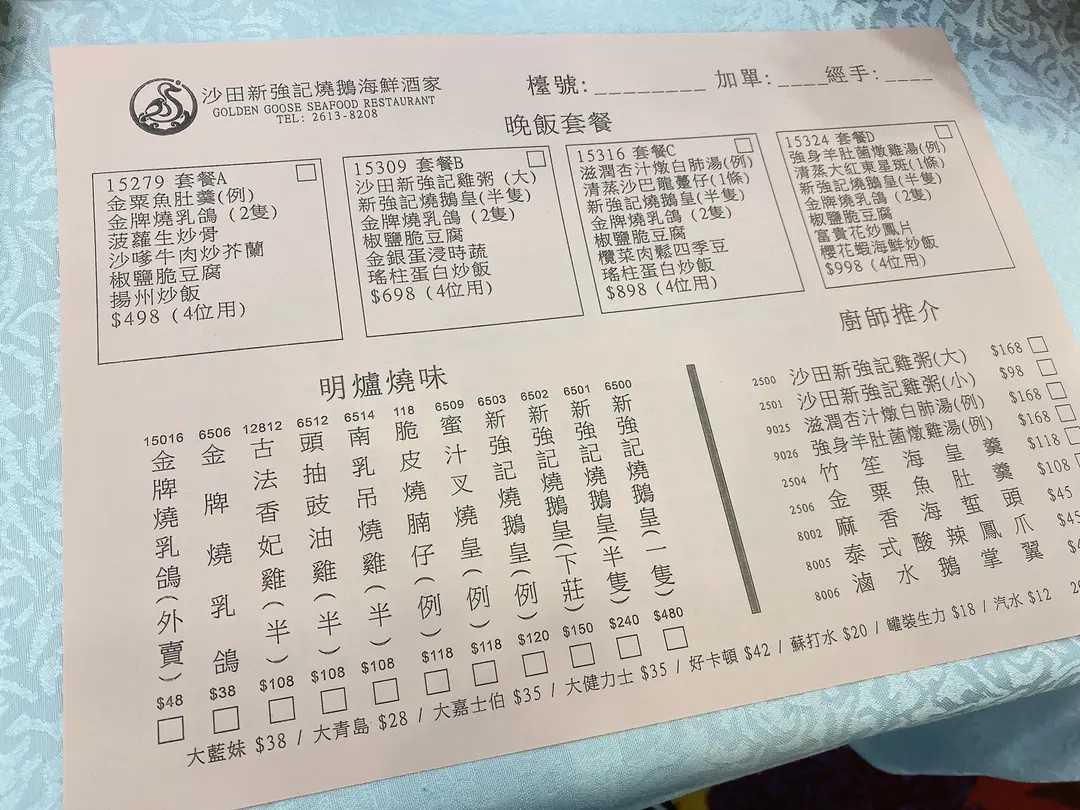 沙田新強記燒鵝海鮮酒家
GOLDEN GOOSE SEAFOOD RESTAURANT
TEL: 2613-8208
檯號:________ 加單:____經手:____
晚飯套餐
15279 套餐A
金粟魚肚羹(例)
金牌燒乳鴿 (2隻)
菠蘿生炒骨
沙嗲牛肉炒芥蘭
椒鹽脆豆腐
揚州炒飯
$498 (4位用)
15309 套餐B
沙田新強記雞粥 (大)
新強記燒鵝皇(半隻)
金牌燒乳鴿 (2隻)
椒鹽脆豆腐
金銀蛋浸時蔬
瑤柱蛋白炒飯
$698 (4位用)
15316 套餐C
滋潤杏汁燉白肺湯(例)
清蒸沙巴龍躉仔(1條)
新強記燒鵝皇(半隻)
金牌燒乳鴿 (2隻)
椒鹽脆豆腐
欖菜肉鬆四季豆
瑤柱蛋白炒飯
$898 (4位用)
15324 套餐D
強身羊肚菌燉雞湯(例)
清蒸大紅東星斑(1條)
新強記燒鵝皇(半隻)
金牌燒乳鴿 (2隻)
椒鹽脆豆腐
富貴花炒鳳片
櫻花蝦海鮮炒飯
$998 (4位用)
明爐燒味
15016 金牌燒乳鴿(外賣) $48
6506 金牌燒乳鴿 $38
12812 古法香妃雞(半) $108
6512 頭抽豉油雞(半) $108
6514 南乳吊燒雞(半) $108
118 脆皮燒腩仔(例) $118
6509 蜜汁叉燒皇(例) $118
6503 新強記燒鵝皇(例) $120
6502 新強記燒鵝皇(下莊) $150
6501 新強記燒鵝皇(半隻) $240
6500 新強記燒鵝皇(一隻) $480
廚師推介
2500 沙田新強記雞粥(大) $168
2501 沙田新強記雞粥(小) $98
9025 滋潤杏汁燉白肺湯(例) $168
9026 強身羊肚菌燉雞湯(例) $168
2504 竹笙海皇羹 $118
2506 金粟魚肚羹 $108
8002 麻香海蜇頭 $45
8005 泰式酸辣鳳爪 $45
8006 滷水鵝掌翼
大藍妹 $38 / 大青島 $28 / 大嘉士伯 $35 / 大健力士 $35 / 好卡頓 $42 / 蘇打水 $20 / 罐裝生力 $18 / 汽水 $12